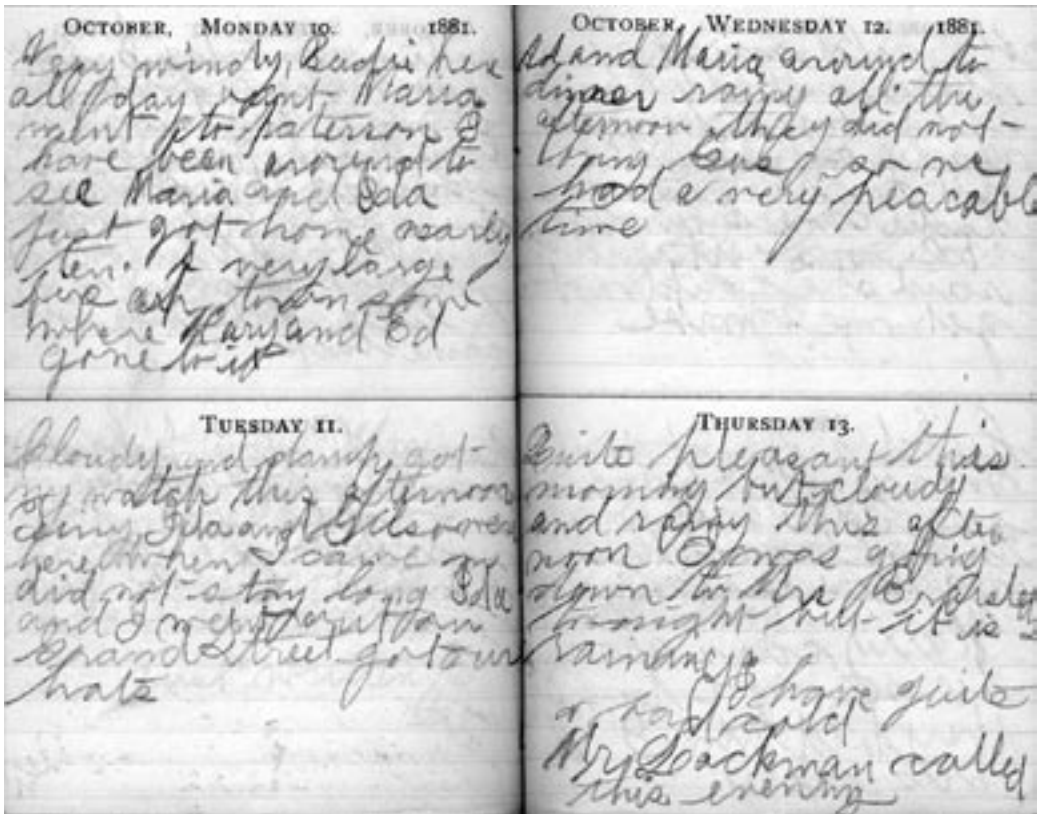 OCTOBER, MONDAY 10. 1881.
Very windy, Sadie here
all day Aunt Maria
went to Paterson I
have been around to
see Maria and Ida
just got home nearly
ten. A very large
fire up town some
where Mary and Ed
gone to it
TUESDAY 11.
Cloudy and damp got
my watch this afternoon
Ida and Gus were
here when I came in
did not stay long Ida
and I went out on
Grand Street got our
hats
OCTOBER, WEDNESDAY 12. 1881.
Ed and Maria around to
dinner rainy all the
afternoon they did not
bring Gus so we
had a very peacable
time
THURSDAY 13.
Quite pleasant this
morning but cloudy
and rainy this after
noon I was going
down to Mrs
tonight but it is
raining
I have quite
a bad cold
Mr. Lockman called
this evening